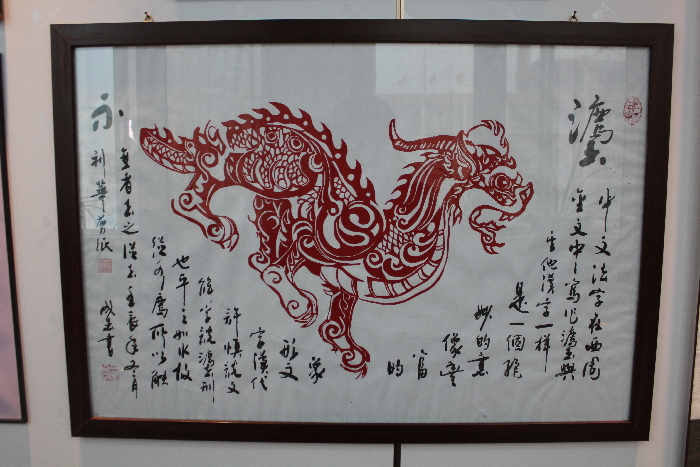 灋
中文法字在西周
金文中寫作灋與
其他漢字一樣
是一個絕
妙的意
像豐
富
的
象
形文
字漢代
許慎說文
解字說灋刑
也平之如水故
從水廌所以觸
直者去之從去壬辰年五月
利華剪紙